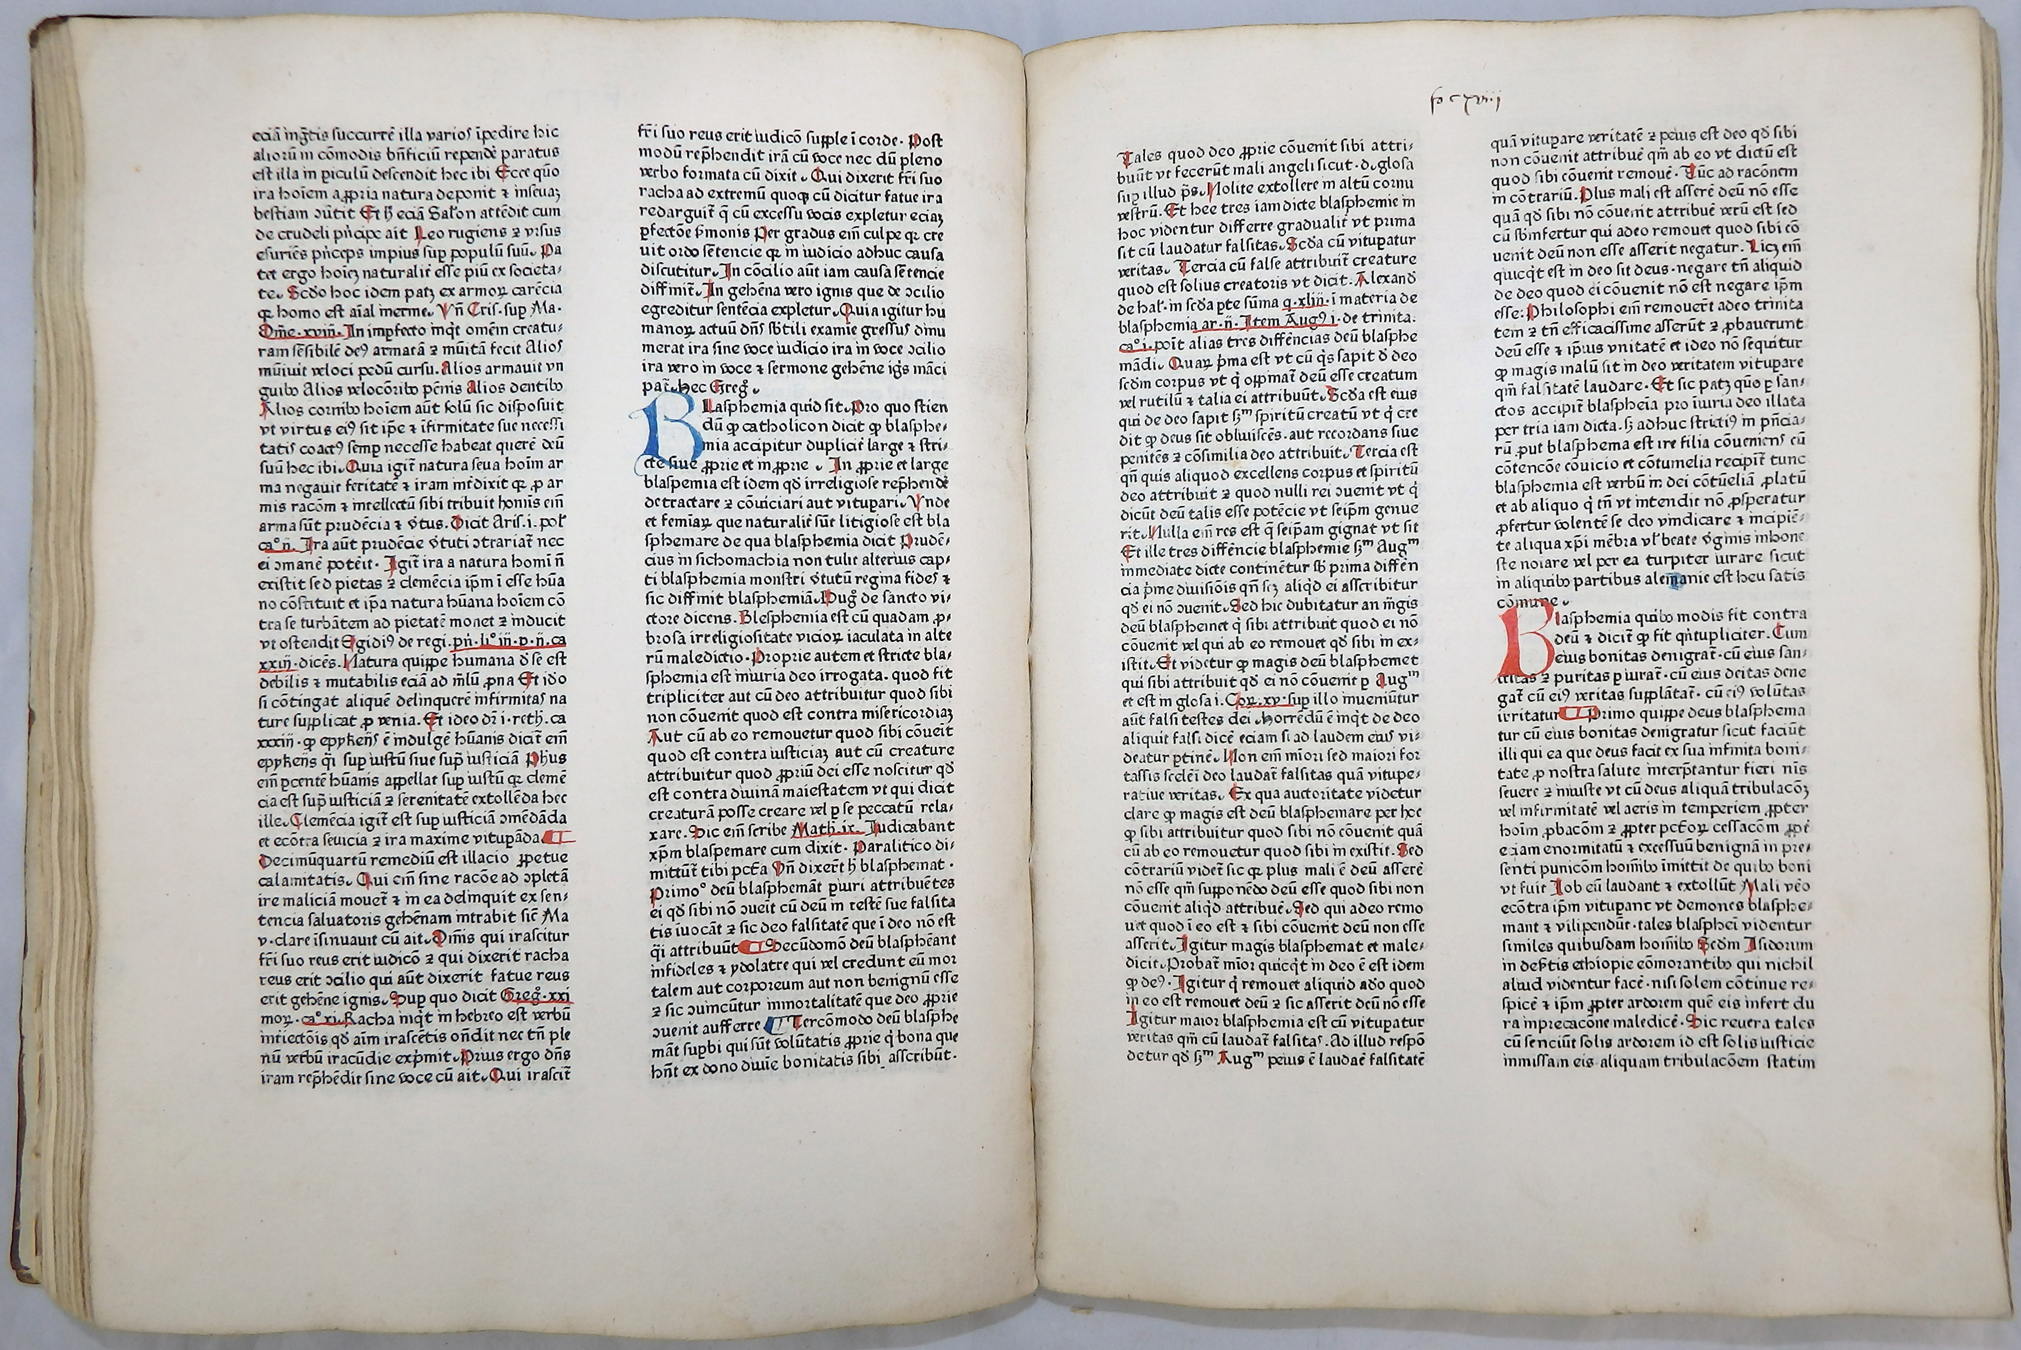 eciā īgr̄tis succurrē illa varios īpedire hic
aliorū in cōmodis bn̄ficiū rependē paratus
est illa in piculū descendit hec ibi Ecce quō
ira hoīem a ꝓpria natura deponit ⁊ in seuaꝫ
bestiam ↄūtit Et h̄ eciā Salōn attēdit cum
de crudeli pn̄cipe ait Leo rugiens ⁊ vrsus
esuriēs pn̄ceps impius sup populū suū. Pa
tet ergo hoīeꝫ naturalir̄ esse piū ex societa⸗
te. Scd̄o hoc idem patꝫ ex armoꝝ carēcia
qꝛ homo est aīal inerme. Vn̄ Cris. sup Ma.
Om̄e. xviij. In impfecto inqt omēm creatu⸗
ram sēsibilē deꝰ armatā ⁊ mūitā fecit Alios
mūiuit veloci pedū cursu. Alios armauit vn
guibꝰ Alios velocōribꝰ pēnis Alios dentibꝰ
Alios cornibꝰ hoīem aūt solū sic disposuit
vt virtus eiꝰ sit ip̄e ⁊ īfirmitate sue necessi
tatis coactꝰ semp necesse habeat querē deū
suū hec ibi. Quia igit̄ natura seua hoīm ar
ma negauit feritatē ⁊ iram īnrdixit qꝛ ꝓ ar
mis racōm ⁊ intellectū sibi tribuit hoīnis em̄
arma sūt prudēcia ⁊ v̄tus. Dicit Aris. i. pol̄
caº. ij. Ira aūt prudēcie v̄tuti ↄtrariat̄ nec
ei ↄmanē poteit. Igit̄ ira a natura homī n̄
existit sed pietas ⁊ clemēcia ip̄m i esse hūa
no cōstituit et ip̄a natura hūana hoīem cō
tra se turbātem ad pietatē monet ⁊ inducit
vt ostendit Egidiꝰ de regi. pn̄. liº. iij. p. ij. ca
xxiij. dicēs. Natura quippe humana d̄ se est
debilis ⁊ mutabilis eciā ad mlū ꝓna Et iō
si cōtingat aliquē delinquerē infirmitas na
ture supplicat ꝓ venia. Et ideo dr̄ i. reth. ca
xxxiij. qꝙ epykeīs ē indulgē hūanis dicit̄ em̄
epykeīs qi sup iustū siue supᵃ iusticiā Phūs
em̄ pcentē hūanis appellat sup iustū qꝛ clemē
cia est supᵃ iusticiā ⁊ serenitatē extollēda hec
ille. Clemēcia igit̄ est sup iusticiā ↄmēdāda
et ecōtra seuicia ⁊ ira maxime vitupāda. ¶
Decimūquartū remediū est illacio ꝓpetue
calamitatis. Qui em̄ sine racōe ad ↄpletā
ire maliciā mouet̄ ⁊ in ea delinquit ex sen⸗
tencia saluatoris gehēnam intrabit sic̄ Ma
v. clare īsinuauit cū ait. Om̄is qui irascitur
fr̄i suo reus erit iudicō ⁊ qui dixerit racha
reus erit ↄcilio qui aūt dixerit fatue reus
erit gehēne ignis. Sup quo dicit Greg̊. xxi
moꝝ. caº. xi. Racha inqt in hebreo est verbū
intiectōis qd̄ aīm irascētis on̄dit nec tn̄ ple
nū verbū iracūdie exp̄mit. Prius ergo dn̄s
iram rep̄hēdit sine voce cū ait. Qui irascit̄
fr̄i suo reus erit iudicō supple ī corde. Post
modū rep̄hendit irā cū voce nec dū pleno
verbo formata cū dixit. Qui dixerit fr̄i suo
racha ad extremū quoqꝫ cū dicitur fatue ira
redarguit̄ q̄ cū excessu vocis expletur eciaꝫ
ꝑfectōe s̄monis Per gradus em̄ culpe qꝛ cre
uit ordo sētencie qꝛ in iudicio adhuc causa
discutitur. In cōcilio aūt iam causa sētencie
diffinit̄. In gehēna vero ignis que de ↄcilio
egreditur sentēcia expletur. Quia igitur hu
manoꝝ actuū dn̄s sb̄tili examīe gressus dīnu
merat ira sine voce iudicio ira in voce ↄcilio
ira vero in voce ⁊ sermone gehēne igīs māci
pat̄. hec Greg̊.
BLasphemia quid sit. Pro quo scien
dū qꝙ catholicon dicit qꝙ blasphe⸗
mia accipitur duplicit̄ large ⁊ stri⸗
cte siue ꝓprie et in ꝓprie. In ꝓprie et large
blaspemia est idem qd̄ irreligiose rep̄hendē
detractare ⁊ cōuiciari aut vitupari. Vnde
et femiaꝝ que naturalir̄ sūt litigiose est bla
sphemare de qua blasphemia dicit Prudē⸗
cius in sichomachia non tulit alterius cap⸗
ti blasphemia monstri v̄tutū regina fides ⁊
sic diffinit blasphemiā. Hug̊ de sancto vi⸗
ctore dicens. Blesphemia est cū quadam ꝓ⸗
brosa irreligiositate vicioꝝ iaculata in alte
rū maledictio. Proprie autem et stricte bla⸗
sphemia est iniuria deo irrogata. quod fit
tripliciter aut cū deo attribuitur quod sibi
non cōuenit quod est contra misericordiaꝫ
Aut cū ab eo remouetur quod sibi cōueīt
quod est contra iusticiaꝫ aut cū creature
attribuitur quod ꝓpriū dei esse noscitur qd̄
est contra diuinā maiestatem vt qui dicit
creaturā posse creare vel p se peccatū rela⸗
xare. Sic em̄ scribe Math. ix. Iudicabant
xp̄m blaspemare cum dixit. Paralitico di⸗
mittūt̄ tibi pctā Vn̄ dixert̄ h̄ blasphemat.
Primoº deū blasphemāt piuri attribuētes
ei qd̄ sibi nō ↄueīt cū deū in testē sue falsita
tis īuocāt ⁊ sic deo falsitatē que ī deo nō est
q̄i attribuūt ¶ Secūdomō deū blasphēant
infideles ⁊ ydolatre qui vel credunt eū mor
talem aut corporeum aut non benignū esse
⁊ sic ↄuincūtur inmortalitatē que deo ꝓprie
ↄuenit aufferre ¶ Tercōmodo deū blasphe
māt supbi qui sūt volūtatis ꝓprie q̄ bona que
hn̄t ex dono diuīe bonitatis sibi asscribūt.
fo cxviij
Tales quod deo ꝓprie cōuenit sibi attri⸗
buūt vt fecerūt mali angeli sicut. d. glosa
sup illud ps̄. Nolite extollere in altū cornu
vestrū. Et hee tres iam dicte blasphemie in
hoc videntur differre gradualir̄ vt prima
sit cū laudatur falsitas. Scd̄a cū vitupatur
veritas. Tercia cū false attribuit̄ creature
quod est solius creatoris vt dicit. Alexand̄
de hal. in scd̄a pte sūma q. xliij. ī materia de
blasphemia ar. ij. Item Augꝰ i. de trinita.
caº i. poīt alias tres diffēncias deū blasphe
mādi. Quaꝝ p̄ma est vt cū q̄s sapit d̄ deo
scd̄m corpus vt q̄ oppīnat̄ deū esse creatum
vel rutilū ⁊ talia ei attribuūt. Scd̄a est eius
qui de deo sapit ẜᵐ spiritū creatū vt q̄ cre
dit qꝙ deus sit obliuiscēs. aut recordans siue
penitēs ⁊ cōsimilia deo attribuit. Tercia est
qn̄ quis aliquod excellens corpus et spiritū
deo attribuit ⁊ quod nulli rei ↄuenit vt q̄
dicūt deū talis esse potēcie vt seip̄m genue
rit. Nulla em̄ res est q̄ seip̄am gignat vt sit
Et ille tres diffēncie blasphemie ẜᵐ Augᵐ
inmediate dicte continētur sb̄ prima diffēn
cia p̄me diuisiōis qn̄ scꝫ aliqd̄ ei asscribitur
qd̄ ei nō ↄuenit. Sed hic dubitatur an m̄gis
deū blasphemet q̄ sibi attribuit quod ei nō
cōuenit vel qui ab eo remouet qd̄ sibi in ex⸗
istit. Et videtur qꝙ magis deū blasphemet
qui sibi attribuit qd̄ ei nō cōuenit p Augᵐ
et est in glosa i. Coꝝ. xv. sup illo inueniūtur
aūt falsi testes dei. Horrēdū ē inqt de deo
aliquit falsi dicē eciam si ad laudem eius vi⸗
deatur ptinē. Non em̄ mīori sed maiori for
tassis scelei deo laudat̄ falsitas quā vitupe⸗
ratiue veritas. Ex qua auctoritate videtur
clare qꝙ magis est deū blasphemare per hec
qꝙ sibi attribuitur quod sibi nō cōuenit quā
cū ab eo remouetur quod sibi in existit. Sed
cōtrariū videt̄ sic qꝛ plus mali ē deū asserē
nō esse qm̄ supponēdo deū esse quod sibi non
cōuenit aliqd̄ attribuē. Sed qui adeo remo
uet quod ī eo est ⁊ sibi cōuenit deū non esse
asserit. Igitur magis blasphemat et male⸗
dicit. Probat̄ mīor quicqt̄ in deo ē est idem
qꝙ deꝰ. Igitur q̄ remouet aliquid ado quod
in eo est remouet deū ⁊ sic asserit deū nō esse
Igitur maior blasphemia est cū vitupatur
veritas qm̄ cū laudat̄ falsitas. Ad illud respō
detur qd̄ ẜᵐ Augᵐ peius ē laudat̄ falsitatē
quā vitupare veritatē ⁊ peius est deo qd̄ sibi
non cōuenit attribuē qm̄ ab eo vt dictū est
quod sibi cōuenit remouē. Tūc ad racōnem
in cōtrariū. Plus mali est asserē deū nō esse
quā qd̄ sibi nō cōuenit attribuē verū est sed
cū sb̄infertur qui adeo remouet quod sibi cō
uenit deū non esse asserit negatur. Licꝫ em̄
quicqt̄ est in deo sit deus. negare tn̄ aliquid
de deo quod ei cōuenit nō est negare ip̄m
esse: Philosophi em̄ remouert̄ adeo trinita
tem ⁊ tn̄ efficacissime asserūt ⁊ ꝓbauerunt
deū esse ⁊ ip̄ius vnitatē et ideo nō sequitur
qꝙ magis malū sit in deo veritatem vitupare
qm̄ falsitatē laudare. Et sic patꝫ quō p san⸗
ctos accipit̄ blaspheīa pro īiuria deo illata
per tria iam dicta. s̄ adhuc strictiꝰ in pn̄cia⸗
rū. put blasphema est ire filia cōueniens cū
cōtencōe cōuicio et cōtumelia recipit̄ tunc
blasphemia est verbū in dei cōtūeliā ꝓlatū
et ab aliquo q̄ tn̄ vt intendit nō ꝓsperatur
ꝓfertur volentē se deo vindicare ⁊ incipiē⸗
te aliqua xp̄i mēbra vl̄ beate v̄ginis inhone
ste noīare vel per ea turpiter iurare sicut
in aliquibꝰ partibus alemanie est heu satis
cōmune.
BLasphemia quibꝰ modis fit contra
deū ⁊ dicit̄ qꝙ fit qn̄tupliciter. Cum
eius bonitas denigrat̄. cū eius san⸗
ctitas ⁊ puritas piurat̄. cū eius deitas dene
gat̄ cū eiꝰ veritas supplātat̄. cū eiꝰ volūtas
irritatur ¶ Primo quippe deus blasphema
tur cū eius bonitas denigratur sicut faciūt
illi qui ea que deus facit ex sua infinita boni⸗
tate ꝓ nostra salute interp̄tantur fieri nīs
seuere ⁊ iniuste vt cū deus aliquā tribulacōꝫ
vel infirmitatē vel aeris in temperiem ꝓpter
hoīm ꝓbacōm ⁊ ꝓpter pctoꝝ cessacōm ꝓpt̄
eciam enormitatū ⁊ excessuū benignā in pre⸗
senti punicōm homībꝰ īmittit de quibꝰ boni
vt fuit Iob eū laudant ⁊ extollūt Mali v̄o
ecōtra ip̄m vitupant vt demones blasphe⸗
mant ⁊ vilipendūt. tales blasphēi videntur
similes quibusdam homībꝰ Scd̄m Isidorum
in desertis ethiopie cōmorantibꝰ qui nichil
aliud videntur facē. nisi solem cōtinue re⸗
spicē ⁊ ip̄m ꝓpter ardorem quē eis infert du
ra inprecacōne maledicē. Sic reuera tales
cū senciūt solis ardorem id est solis iusticie
inmissam eis aliquam tribulacōem statim